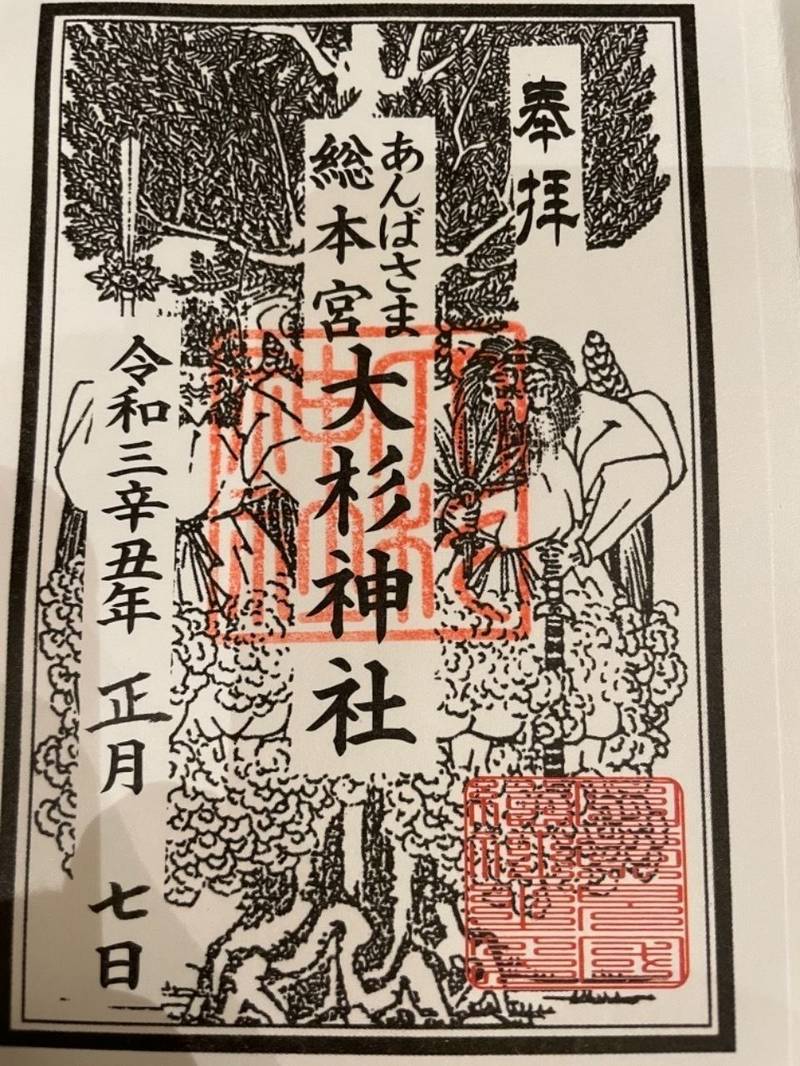 奉拝
あんばさま
総本宮
大杉神社
令和三辛丑年 正月 七日